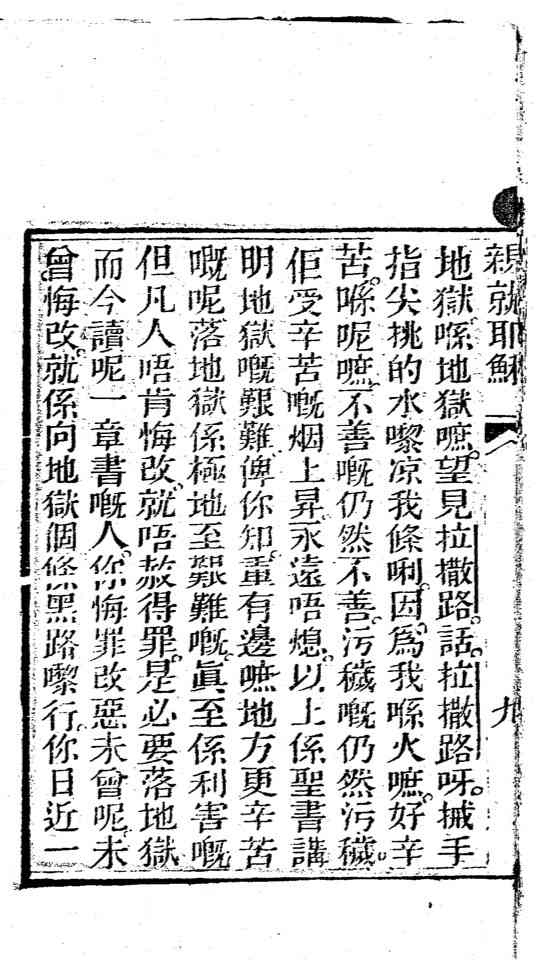 親就耶穌 九
地獄。喺地獄嘸。望見拉撒路話。拉撒路呀。搣手
指尖挑的水嚟凉我條脷。因爲我喺火嘸。好辛
苦。喺呢嘸。不善嘅仍然不善。污穢嘅仍然污穢。
佢受辛苦嘅烟上昇。永遠唔熄。以上係聖書講
明地獄嘅艱難。俾你知。重有邊嘸地方更辛苦
嘅呢。落地獄係極地至艱難嘅。眞至係利害嘅
但凡人唔肯悔改。就唔赦得罪。是必要落地獄
而今讀呢一章書嘅人。你悔罪改惡未曾呢。未
曾悔改。就係向地獄個條黑路嚟行。你日近一